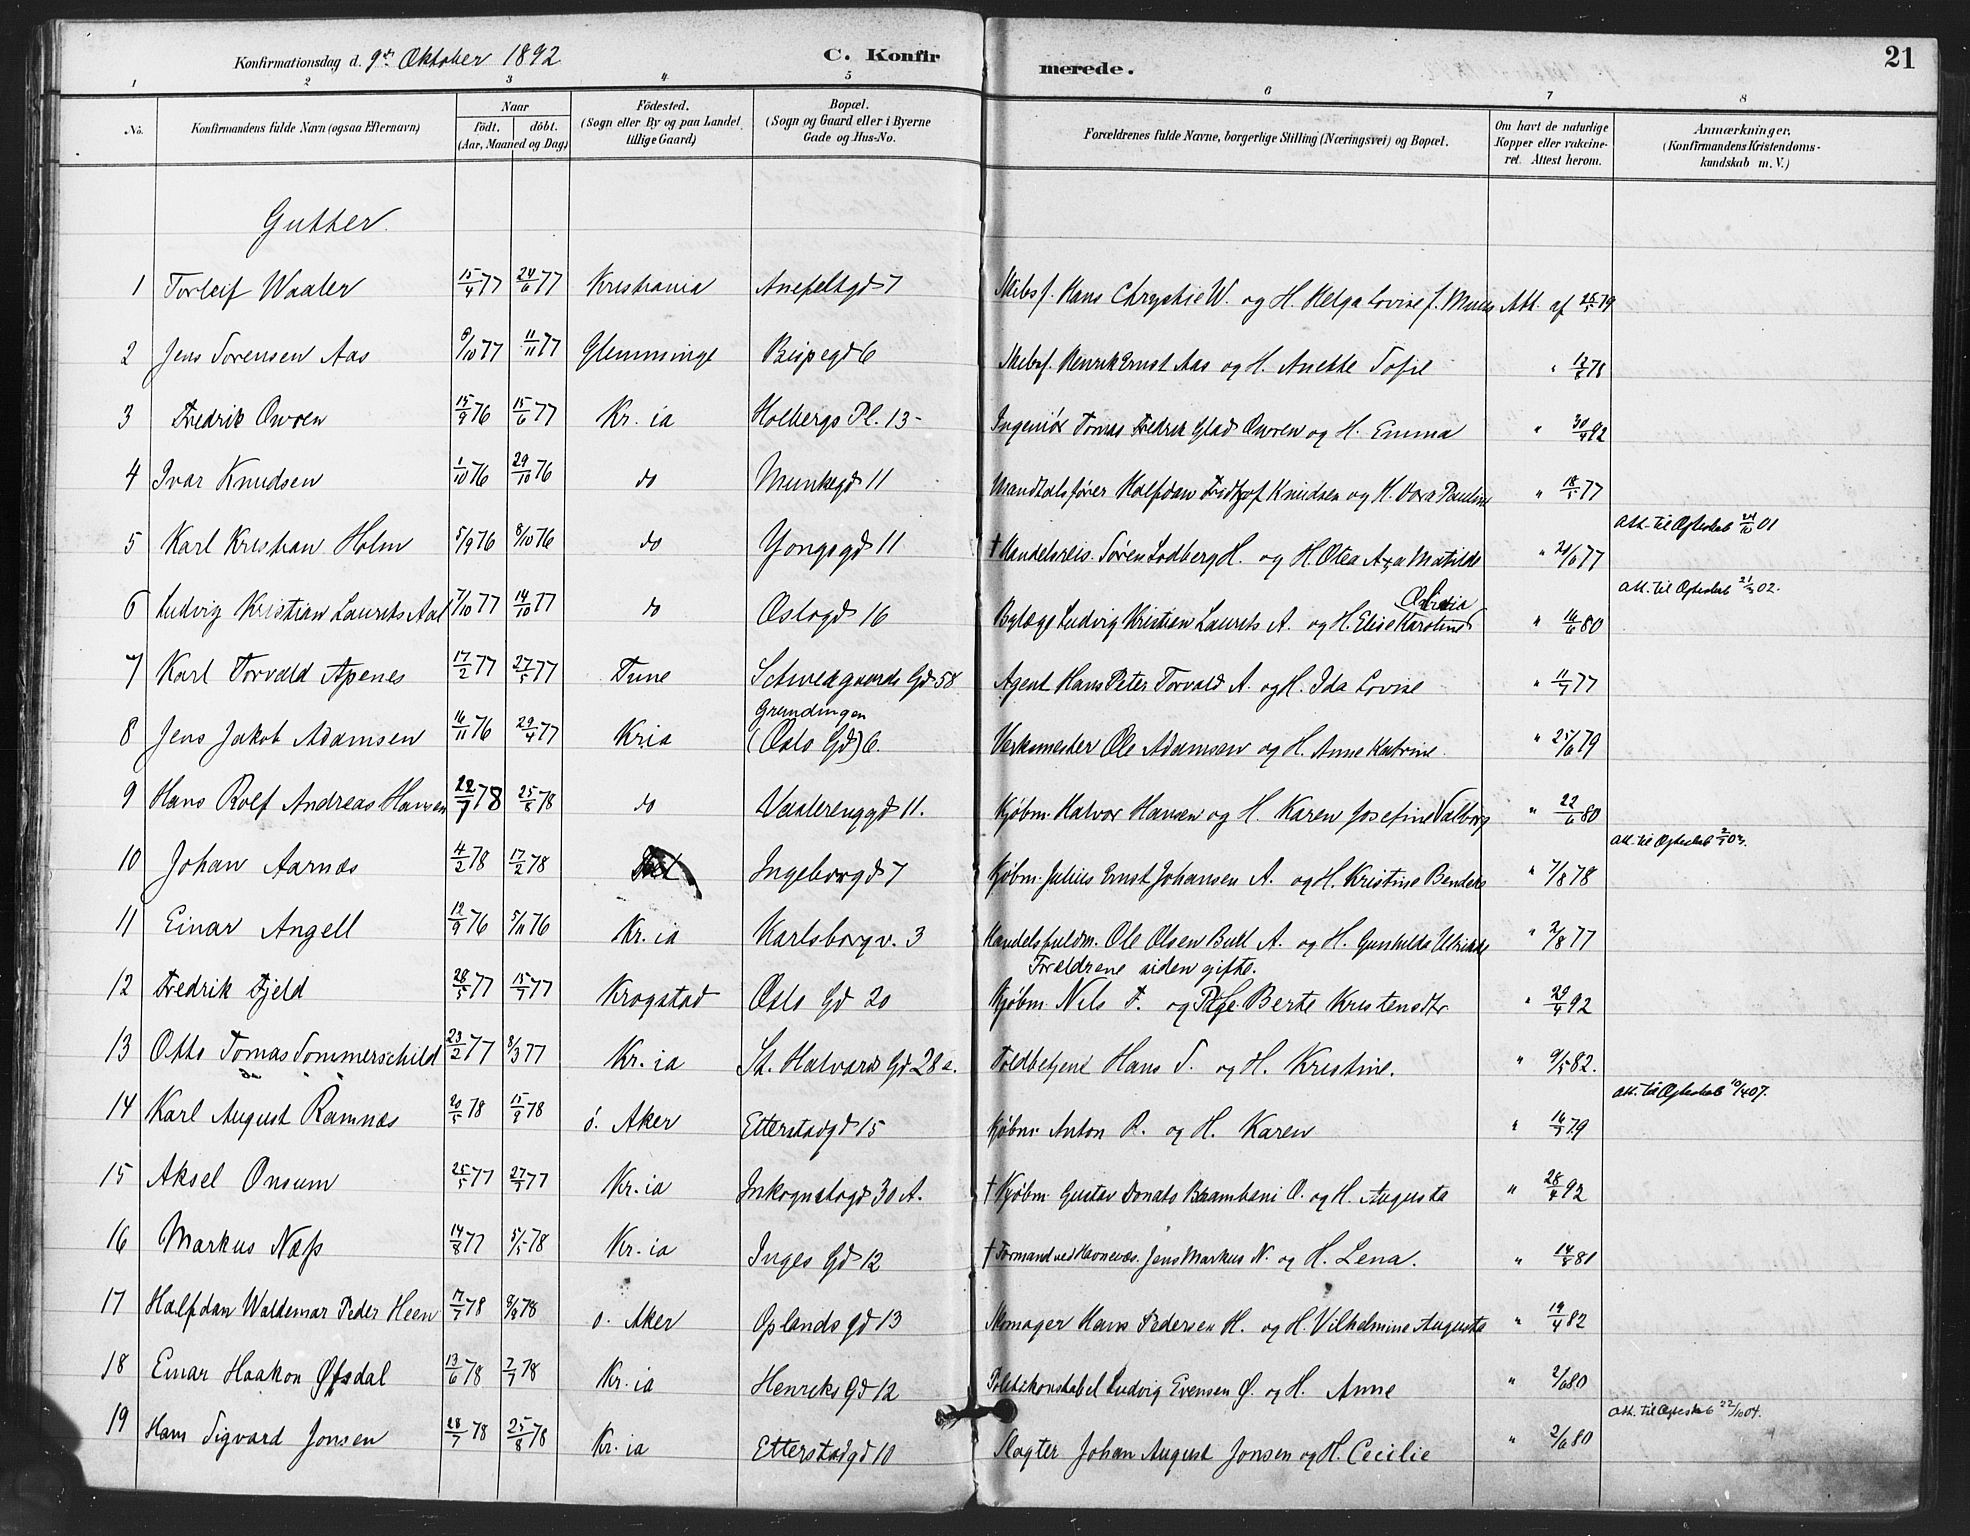 Konfirmationsdag d. 9de Oktober 1892 C. Konfir merede. 21
1 2 3 4 5 6 7 8
No. Konfirmandens fulde Navn (ogsaa Efternavn) Naar födt. döbt. (Aar, Maaned og Dag) Födested. (Sogn eller By og paa Landet tillige Gaard) Bopæl. (Sogn og Gaard eller i Byerne Gade og Hus-No. Forældrenes fulde Navne, borgerlige Stilling (Næringsvei) og Bopæl. Om havt de naturlige Kopper eller vakcineret. Attest herom. Anmærkninger. (Konfirmandens Kristendomskundskab m. V.)
Gutter.
1 Torleif Waaler 15/4 77 24/6 77 Kristiania Anefeltgd 7 Skibsf. Hans Chrystie W. og H. Helga Lovise f. Att. af 25/5 79
2 Jens Sorensen Aas 8/10 77 11/11 77 Glemminge Bispegd 6 Skibsf. Henrik Ernst Aas og H. Anette Sofie " 78
3 Fredrik Owren 15/9 76 15/6 77 Kr. ia Holbergs Pl. 13 Ingeniör Tomas Fredrik Glad Owren og H. Emma " 30/4 92
4 Ivar Knudsen 1/10 76 29/10 76 do Munkegd 11 Mandtalsfører Halfdan Fridtjof Knudsen og H. Hora Pauline " 18/5 77
att. til Ægteskab 24/10 01
5 Karl Kristian Holm 5/9 76 8/10 76 do Yongsgd 11 † Handelsreis. Søren Lodberg H. og H. Otea Axa Matilde " 77
att. til Ægteskab 21/3 02.
6 Ludvig Kristian Laurets Aal 7/10 77 14/10 77 do Oslogd 16 Bylæge Ludvig Kristian Laurets A. og H. Elise Karoline " 16/6 80
7 Karl Torvald Apenes 17/2 77 27/5 77 Tune Schweigaards Gd 58 Agent Hans Peter Torvald A. og H. Ida Lovise " 11/7 77
8 Jens Jakob Adamsen 16/11 76 29/4 77 Kria Grundingen (Oslo Gd) 6. Verksmester Ole Adamsen og H. Anne Katrine. " 25/6 79
9 Hans Rolf Andreas Hansen 22/7 78 25/8 78 do Vaalerenggd 11. Kjöbm. Halvor Hansen og H. Karen Josefine Valborg " 22/6 80
att. til Ægteskab 2/1 03.
10 Johan Aarnæs 4/2 78 17/2 78 Ingeborgd 7 Kjöbm. Julius Ernst Johansen A. og H. Kristine Benders " 7/8 78
11 Einar Angell 12/9 76 5/11 76 Kr. ia Karlsborgv. 3 Handelsfuldm. Ole Olsen Bull A. og H. Gunhilda Ulrikke " 2/8 77
Forældrene siden gifte.
12 Fredrik Fjeld 28/5 77 15/7 77 Krogstad Oslo Gd 20 Kjöbm. Nils F. og Pige Berte Kristensdtr " 29/4 92
13 Otto Tomas Sommerschild 23/2 77 8/3 77 Kr. ia St. Halvards Gd 28 a. Toldbetjent Hans S. og H. Kristine. " 9/5 82.
att. til Ægteskab 10/4 07.
14 Karl August Ramnæs 20/5 78 15/9 78 ö. Aker Etterstadgd 15 Kjöbm Anton R. og H. Karen " 79
15 Aksel Onsum 25/5 77 27/7 77 Kr. ia Inkognitogd 30 A. † Kjöbm Gustav Donato Brambani O. og H. Augusta " 28/4 92
16 Markus Næss 14/8 77 5/5 78 Kr. ia Inges Gd 12 † Formand ved Havnevæs. Jens Markus N. og H. Lena. " 14/5 81
17 Halfdan Waldemar Peder Heen 17/7 78 9/9 78 ö. Aker Oplands Gd 13 Skomager Hans Pedersen H. og H. Vilhelmine Augusta " 19/4 82
18 Einar Haakon Øfsdal 13/6 78 7/7 78 Kr. ia Henriks Gd 12 Politikonstabel Ludvig Evensen Ø. og H. Anne " 2/6 80
att. til Ægteskab 22/10 04.
19 Hans Sigvard Jonsen 28/7 78 25/8 78 Kr. ia Etterstadgd 10 Slagter Johan August Jonsen og H. Cecilie " 2/6 80